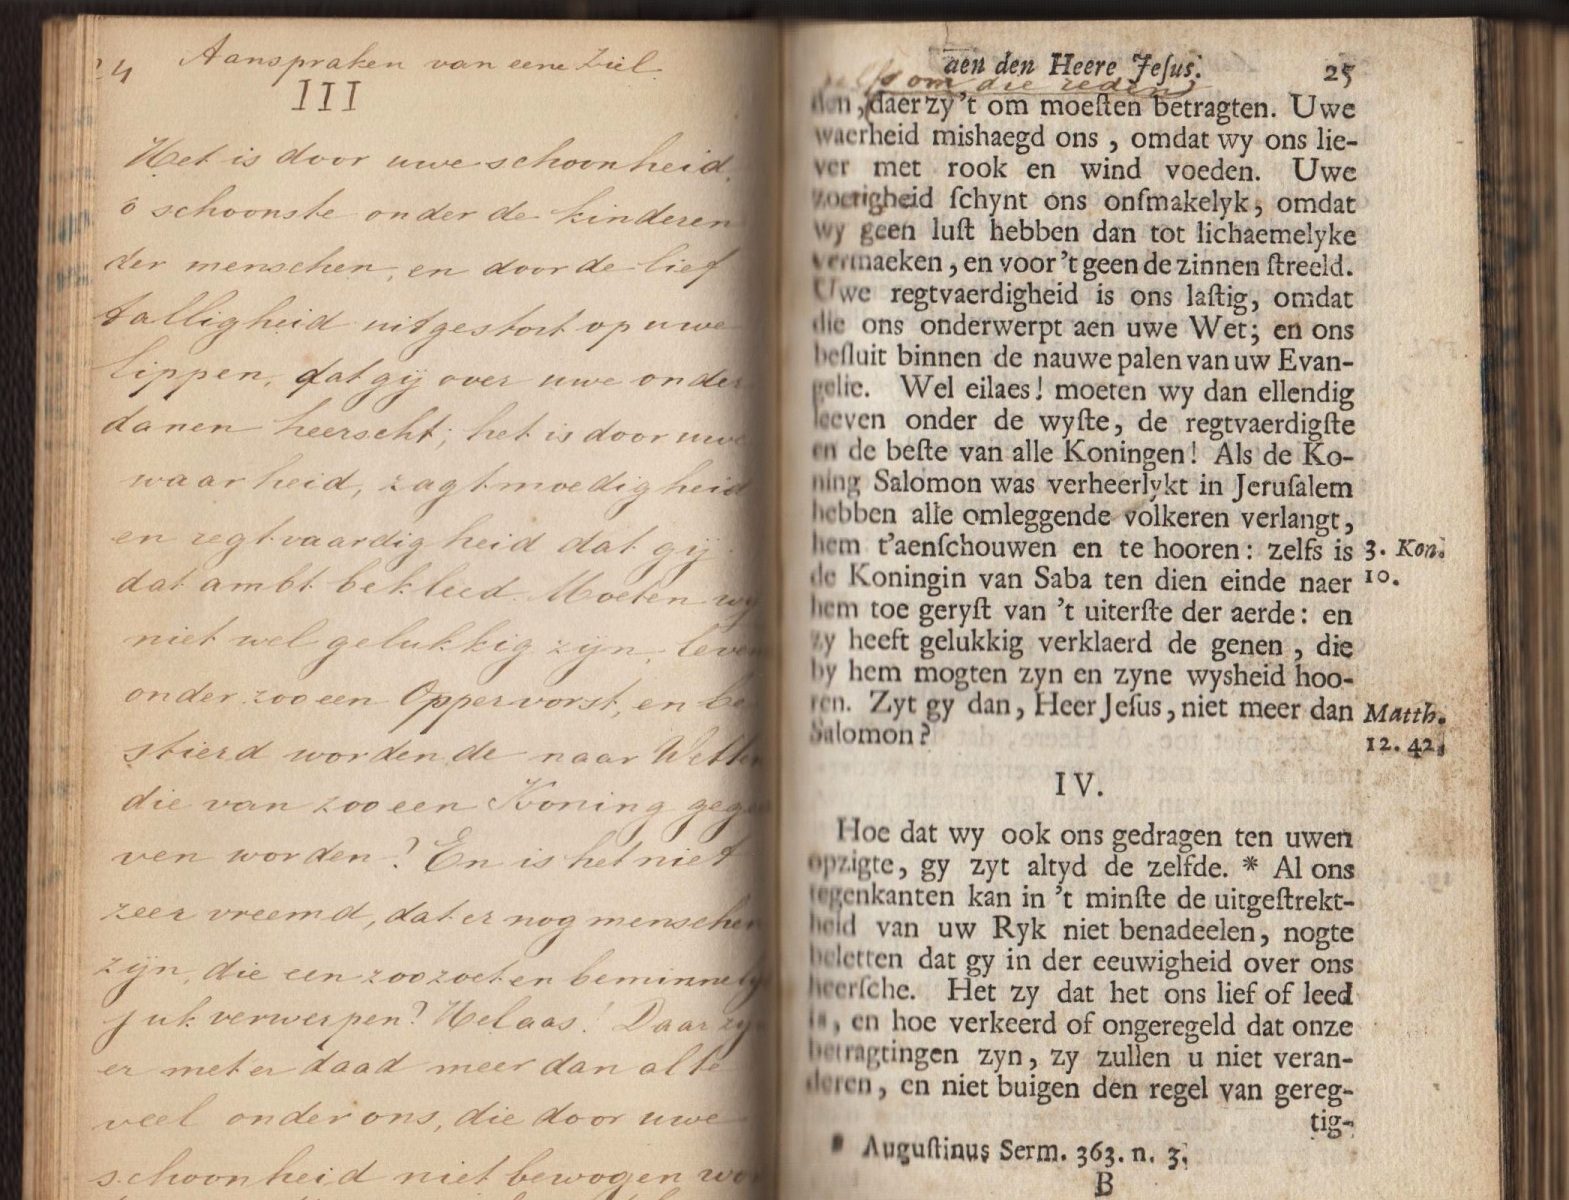 24 Aanspraken van eene Ziel.
III
Het is door uwe schoonheid,
ô schoonste onder de kinderen
der menschen, en door de lief
talligheid uitgestort op uwe
lippen, dat gij over uwe onder
danen heerscht; het is door uwe
waarheid, zagtmoedigheid
en regtvaardigheid dat gij
dat ambt bekleed. Moeten wy
niet wel gelukkig zijn, leven
onder zoo een Oppervorst, en be
stierd worden de naar Wetten
die van zoo een Koning gege
ven worden? En is het niet
zeer vreemd, dat er nog menschen
zijn, die een zoo zoet en beminnelyk
juk verwerpen? Helaas! Daar zyn
er met er daad meer dan al te
veel onder ons, die door uwe
schoonheid niet bewogen wor
aen den Heere Jeſus. 25
zelfs om die reden
den, daer zy 't om moeſten betragten. Uwe
waerheid mishaegd ons, omdat wy ons lie-
ver met rook en wind voeden. Uwe
zoetigheid ſchynt ons onſmakelyk, omdat
wy geen luſt hebben dan tot lichaemelyke
vermaeken, en voor 't geen de zinnen ſtreeld.
Uwe regtvaerdigheid is ons laſtig, omdat
die ons onderwerpt aen uwe Wet; en ons
beſluit binnen de nauwe palen van uw Evan-
gelie. Wel eilaes! moeten wy dan ellendig
leeven onder de wyſte, de regtvaerdigſte
en de beſte van alle Koningen! Als de Ko-
ning Salomon was verheerlykt in Jeruſalem
hebben alle omleggende volkeren verlangt,
hem t'aenſchouwen en te hooren: zelfs is 3. Kon.
de Koningin van Saba ten dien einde naer 10.
hem toe geryſt van 't uiterſte der aerde: en
zy heeft gelukkig verklaerd de genen, die
by hem mogten zyn en zyne wysheid hoo-
ren. Zyt gy dan, Heer Jeſus, niet meer dan Matth.
Salomon? 12. 42.
IV.
Hoe dat wy ook ons gedragen ten uwen
opzigte, gy zyt altyd de zelfde. * Al ons
tegenkanten kan in 't minſte de uitgeſtrekt-
heid van uw Ryk niet benadeelen, nogte
beletten dat gy in der eeuwigheid over ons
heerſche. Het zy dat het ons lief of leed
is, en hoe verkeerd of ongeregeld dat onze
betragtingen zyn, zy zullen u niet veran-
deren, en niet buigen den regel van gereg-
tig-
* Auguſtinus Serm. 363. n. 3.
B